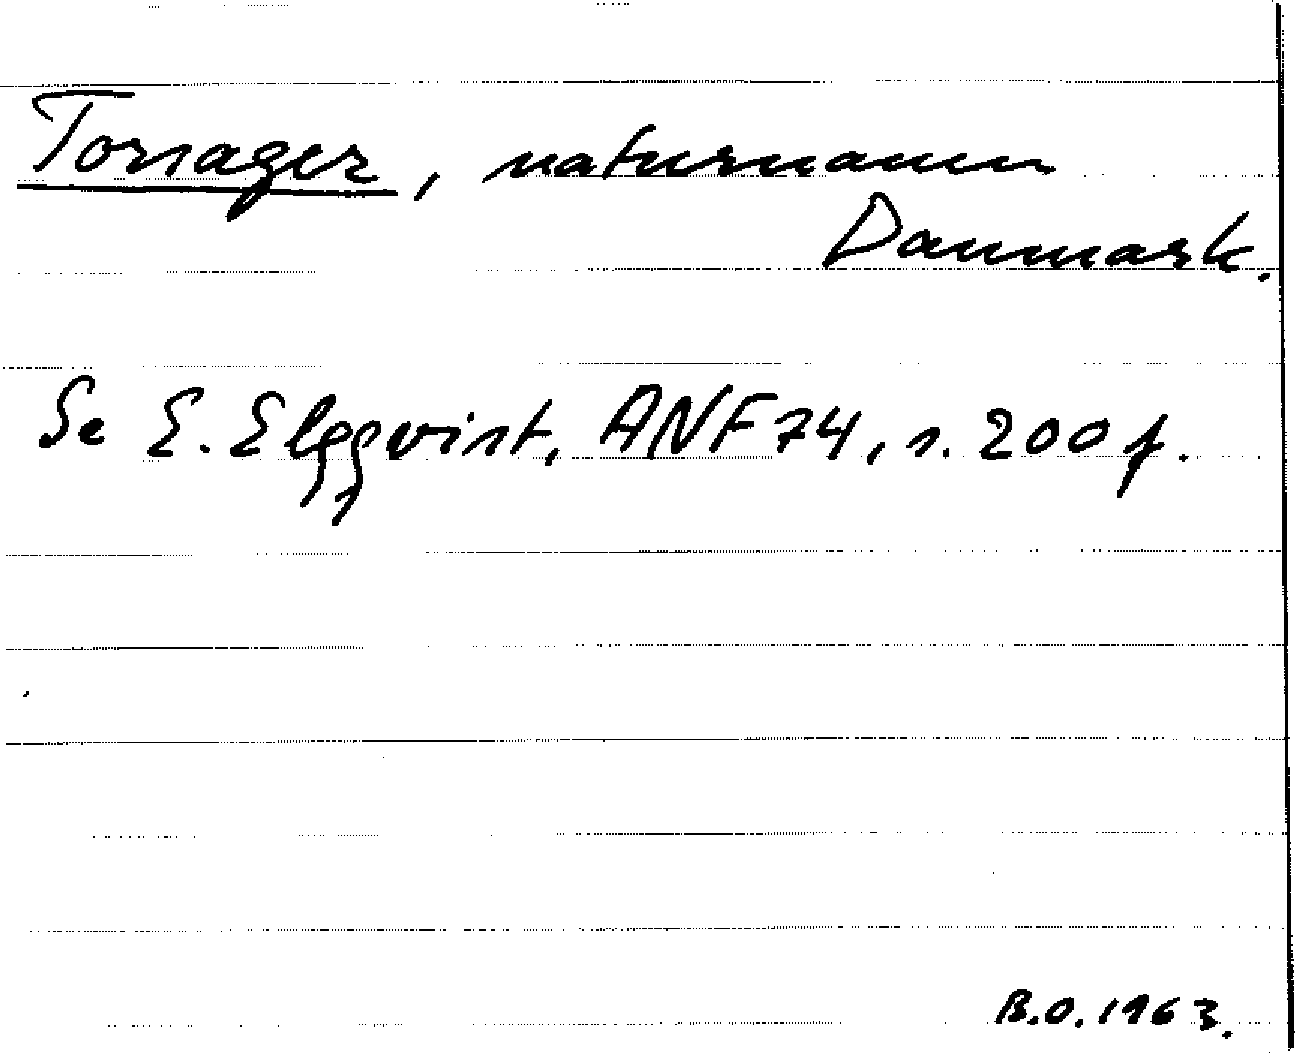 Torsager, naturnamn
Danmark.
Se E. Elgqvist, ANF 74, s. 200 f.
B.O. 1963.